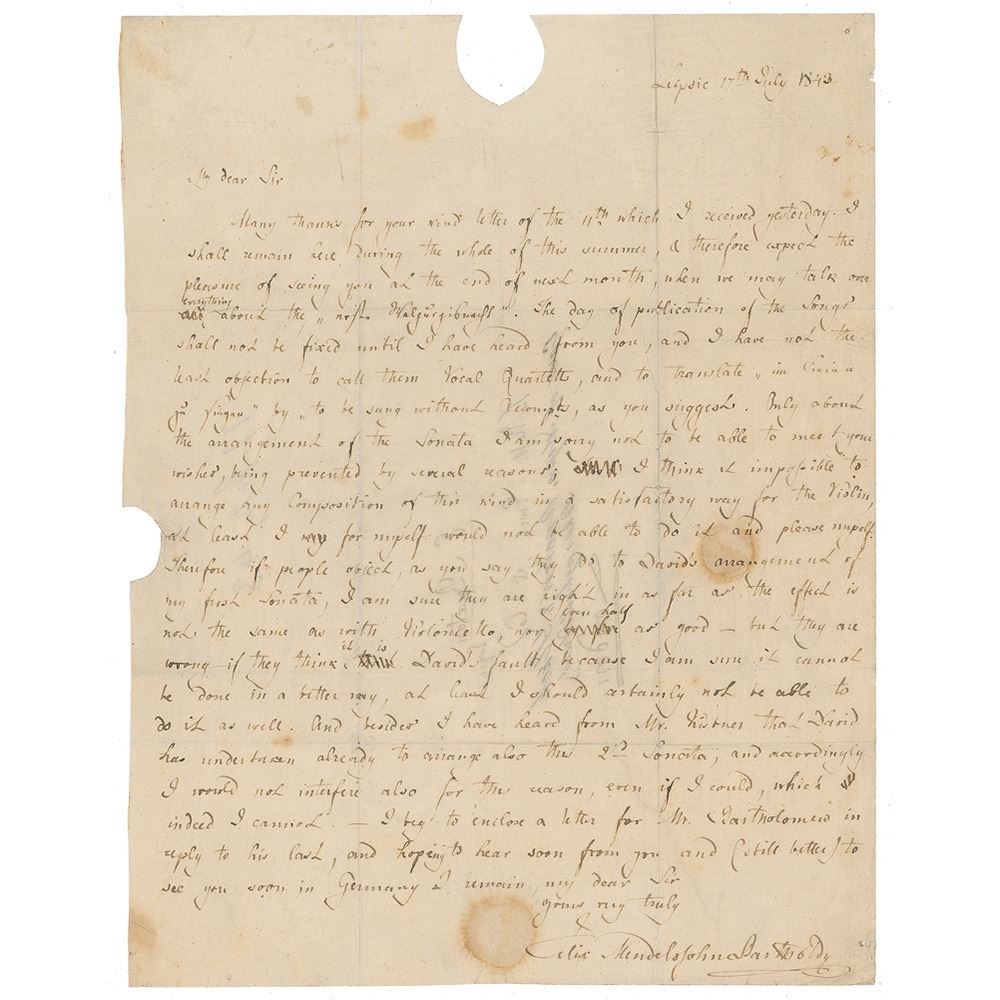 Leipsic 17th July 1843
My dear Sir
Many thanks for your kind letter of the 11th which I received yesterday. I
shall remain here during the whole of this summer, & therefore expect the
pleasure of seeing you at the end of next month, when we may talk over
everything
about the „ Walpurgisnacht". The day of publication of the Songs
shall not be fixed until I have heard from you, and I have not the
least objection to call them Vocal Quartetts, and to translate „im Freien
zu singen" by „to be sung without Accompts, as you suggest. Only about
the arrangement of the Sonata I am sorry not to be able to meet your
wishes, being prevented by several reasons; I think it impossible to
arrange any Composition of this kind in a satisfactory way for the Violin,
at least I for myself would not be able to do it and please myself.
Therefore if people object, as you say they do to David's arrangement of
my first Sonata, I am sure they are right in as far as the effect is
even half
not the same as with Violoncello, nor as good — but they are
it is
wrong if they think David's fault, because I am sure it cannot
be done in a better way, at least I should certainly not be able to
do it as well. And besides I have heard from Mr. Kistner that David
has undertaken already to arrange also this 2d Sonata, and accordingly
I would not interfere also for this reason, even if I could, which
indeed I cannot. — I beg to enclose a letter for Mr. Bartholomew in
reply to his last, and hoping to hear soon from you and (still better) to
see you soon in Germany I remain, my dear Sir
yours very truly
Felix Mendelssohn Bartholdy